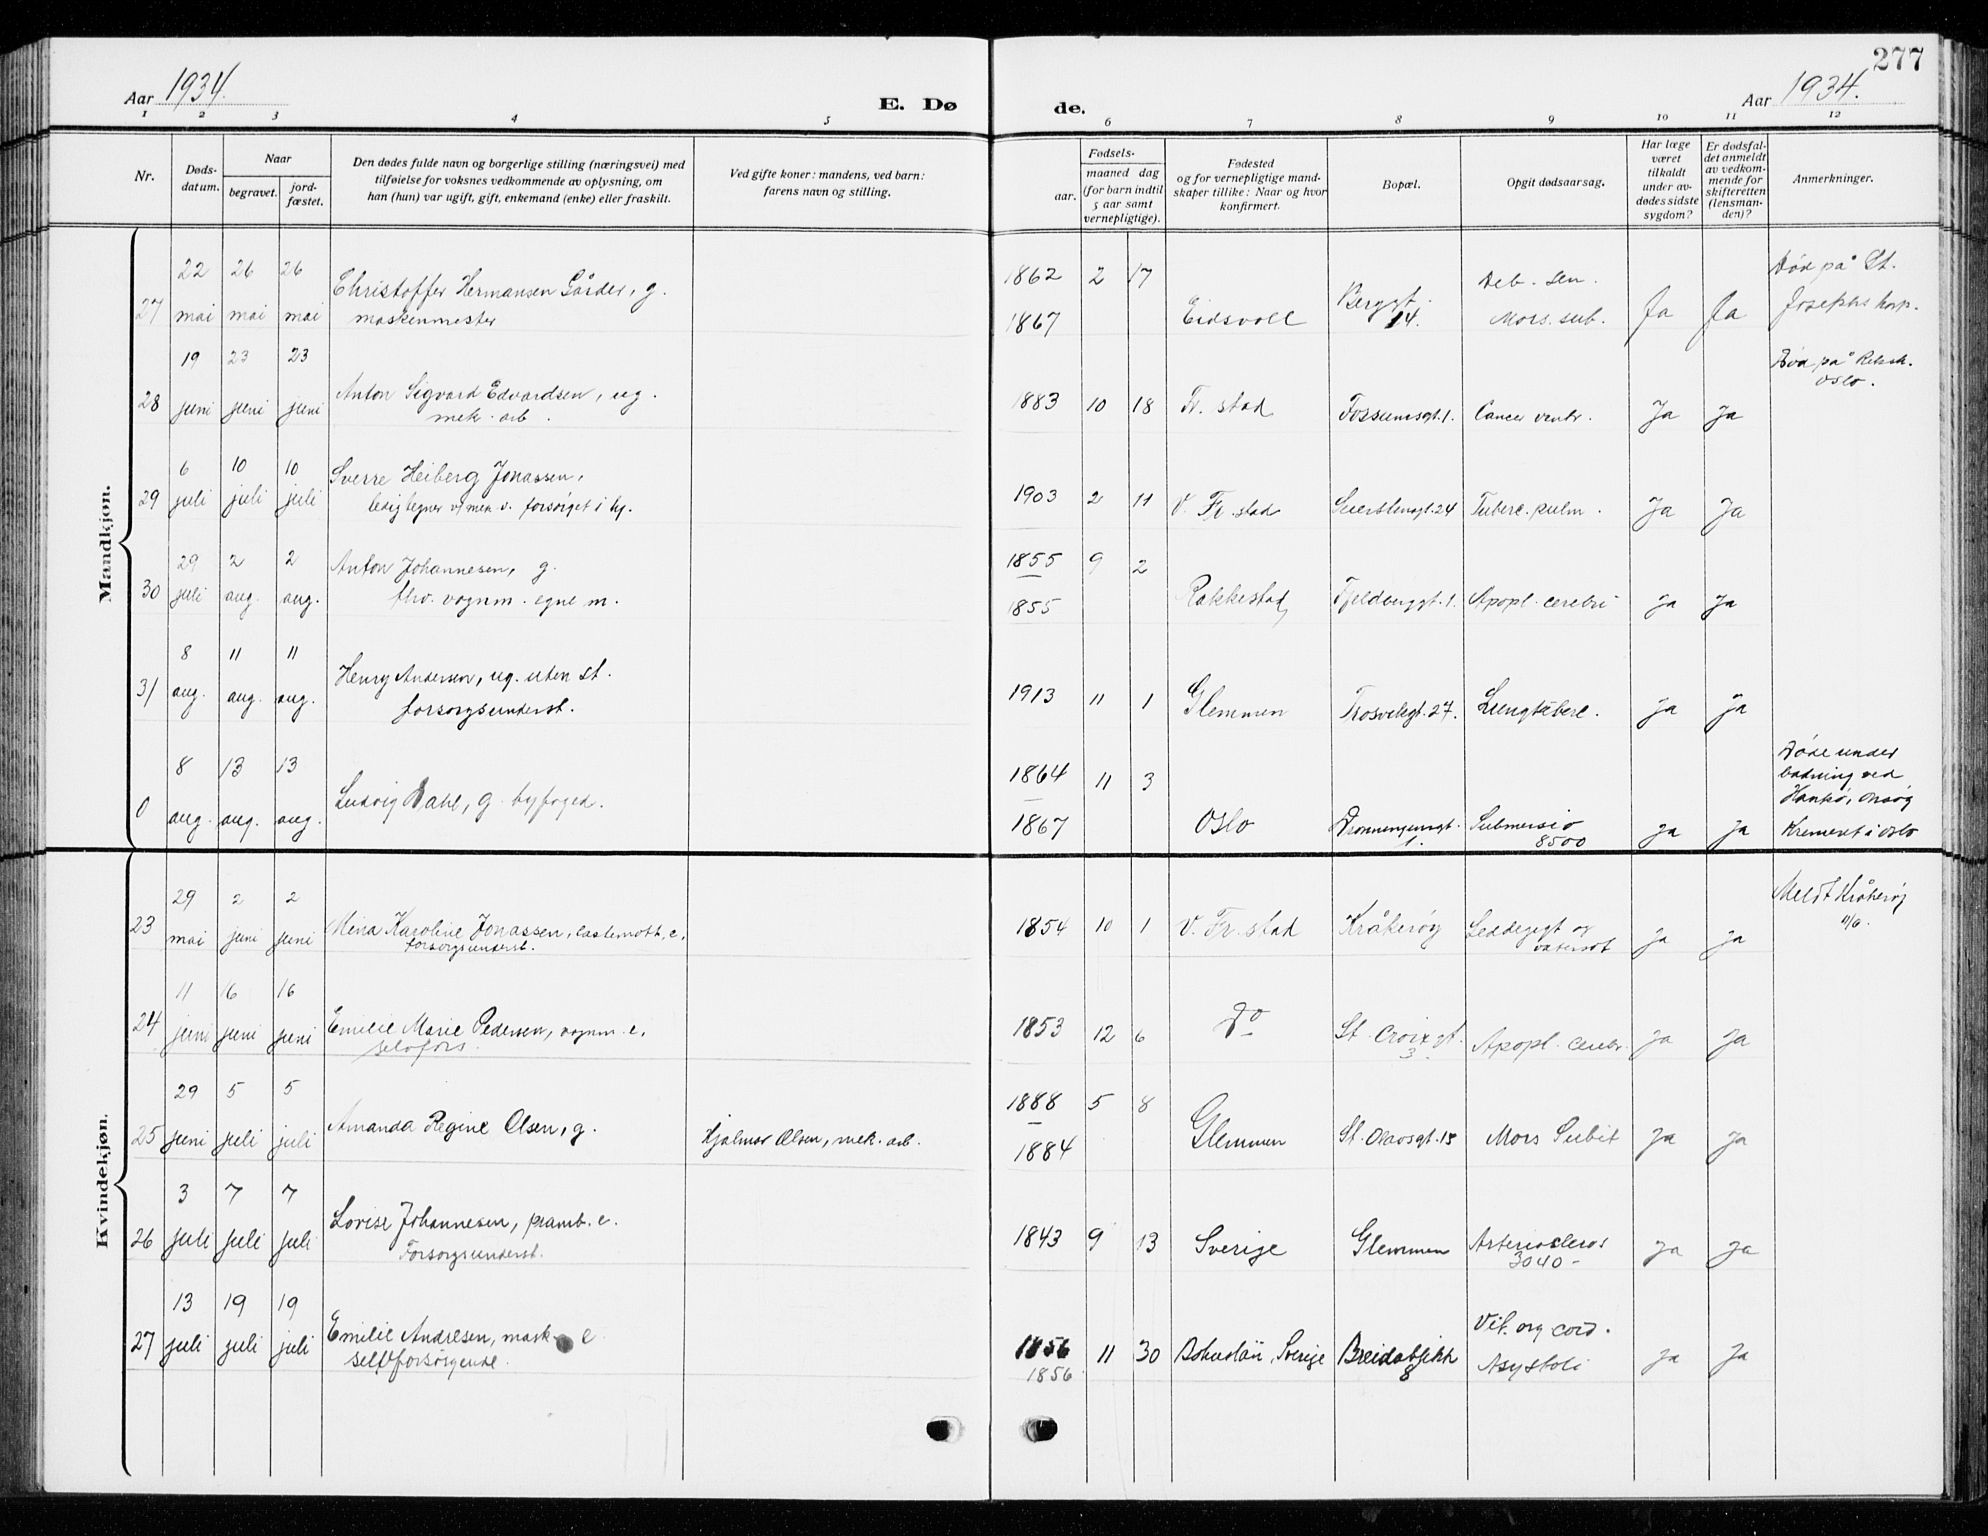 277
Aar 1934.
E. Dø de.
Aar 1934.
1 2 3 4 5 6 7 8 9 10 11 12
Nr.
Døds-
datum.
Naar
begravet.
jord-
fæstet.
Den dødes fulde navn og borgerlige stilling (næringsvei) med
tilføielse for voksnes vedkommende av oplysning, om
han (hun) var ugift, gift, enkemand (enke) eller fraskilt.
Ved gifte koner: mandens, ved barn:
farens navn og stilling.
Fødsels-
aar.
maaned dag
(for barn indtil
5 aar samt
vernepligtige).
Fødested
og for vernepligtige mand-
skaper tillike: Naar og hvor
konfirmert.
Bopæl.
Opgit dødsaarsag.
Har læge
været
tilkaldt
under av-
dødes sidste
sygdom?
Er dødsfal-
det anmeldt
av vedkom-
mende for
skifteretten
(lensman-
den)?
Anmerkninger.
Mandkjøn.
22 26 26
27 mai mai mai
Christoffer Hermansen Gårder, g.
maskenmester
1862 2 17
1867 Eidsvoll
Berggt.
14.
Deb. sen.
Mors. sub.
Ja Ja
Død på St.
Josephs hosp.
19 23 23
28 juni juni juni
Anton Sigvard Edvardsen, ug.
mek. arb.
1883 10 18 Fr. stad Fossumsgt. 1. Cancer ventr. Ja Ja
Død på Riksh.
Oslo.
6 10 10
29 juli juli juli
Sverre Heiberg Jonassen,
forsørget i by.
1903 2 11 V. Fr. stad 24 Tuberc. pulm. Ja Ja
29 2 2
30 juli aug. aug.
Anton Johannesen, g.
fhv. vognm. egne m.
1855 9 2
1855 Rakkestad Fjeldberggt. 1. Apopl. cerebri Ja Ja
8 11 11
31 aug. aug. aug.
Henry Andersen, ug. uten st.
forsorgsunderst.
1913 11 1 Glemmen Trosvikgt. 27. Lungetuberc. Ja Ja
8 13 13
0 aug. aug. aug.
Ludvig Dahl, g. byfoged.
1864 11 3
1867 Oslo Dronningensgt.
1.
Submersio
8500
Ja Ja
Døde under
badning ved
Hankø, Onsøy
Kremert i Oslo
Kvindekjøn.
29 2 2
23 mai juni juni
Mina Karoline Jonassen, lastemott. e.
forsorgsunderst.
1854 10 1 V. Fr. stad Kråkerøy Leddegigt og
vatersot
Ja Ja
Meldt Kråkerøy
11/6.
11 16 16
24 juni juni juni
Emilie Marie Pedersen, vognm. e.
selvfors.
1853 12 6 Do St. Croixgt.
3
Apopl. cerebr. Ja Ja
29 5 5
25 juni juli juli
Amanda Regine Olsen, g.
Hjalmar Olsen, mek. arb.
1888 5 8
1884 Glemmen St. Olavsgt. 15 Mors Subit Ja Ja
3 7 7
26 juli juli juli
Lovise Johannesen, pramb. e.
Forsorgsunderst.
1843 9 13 Sverige Glemmen Arterioscleros
3040 -
Ja Ja
13 19 19
27 juli juli juli
Emilie Andresen, mask. e
selvforsørgende.
1856 11 30
1856
Bohuslän, Sverige Breidablikk
8
Vit. org cord.
Asystoli
Ja Ja